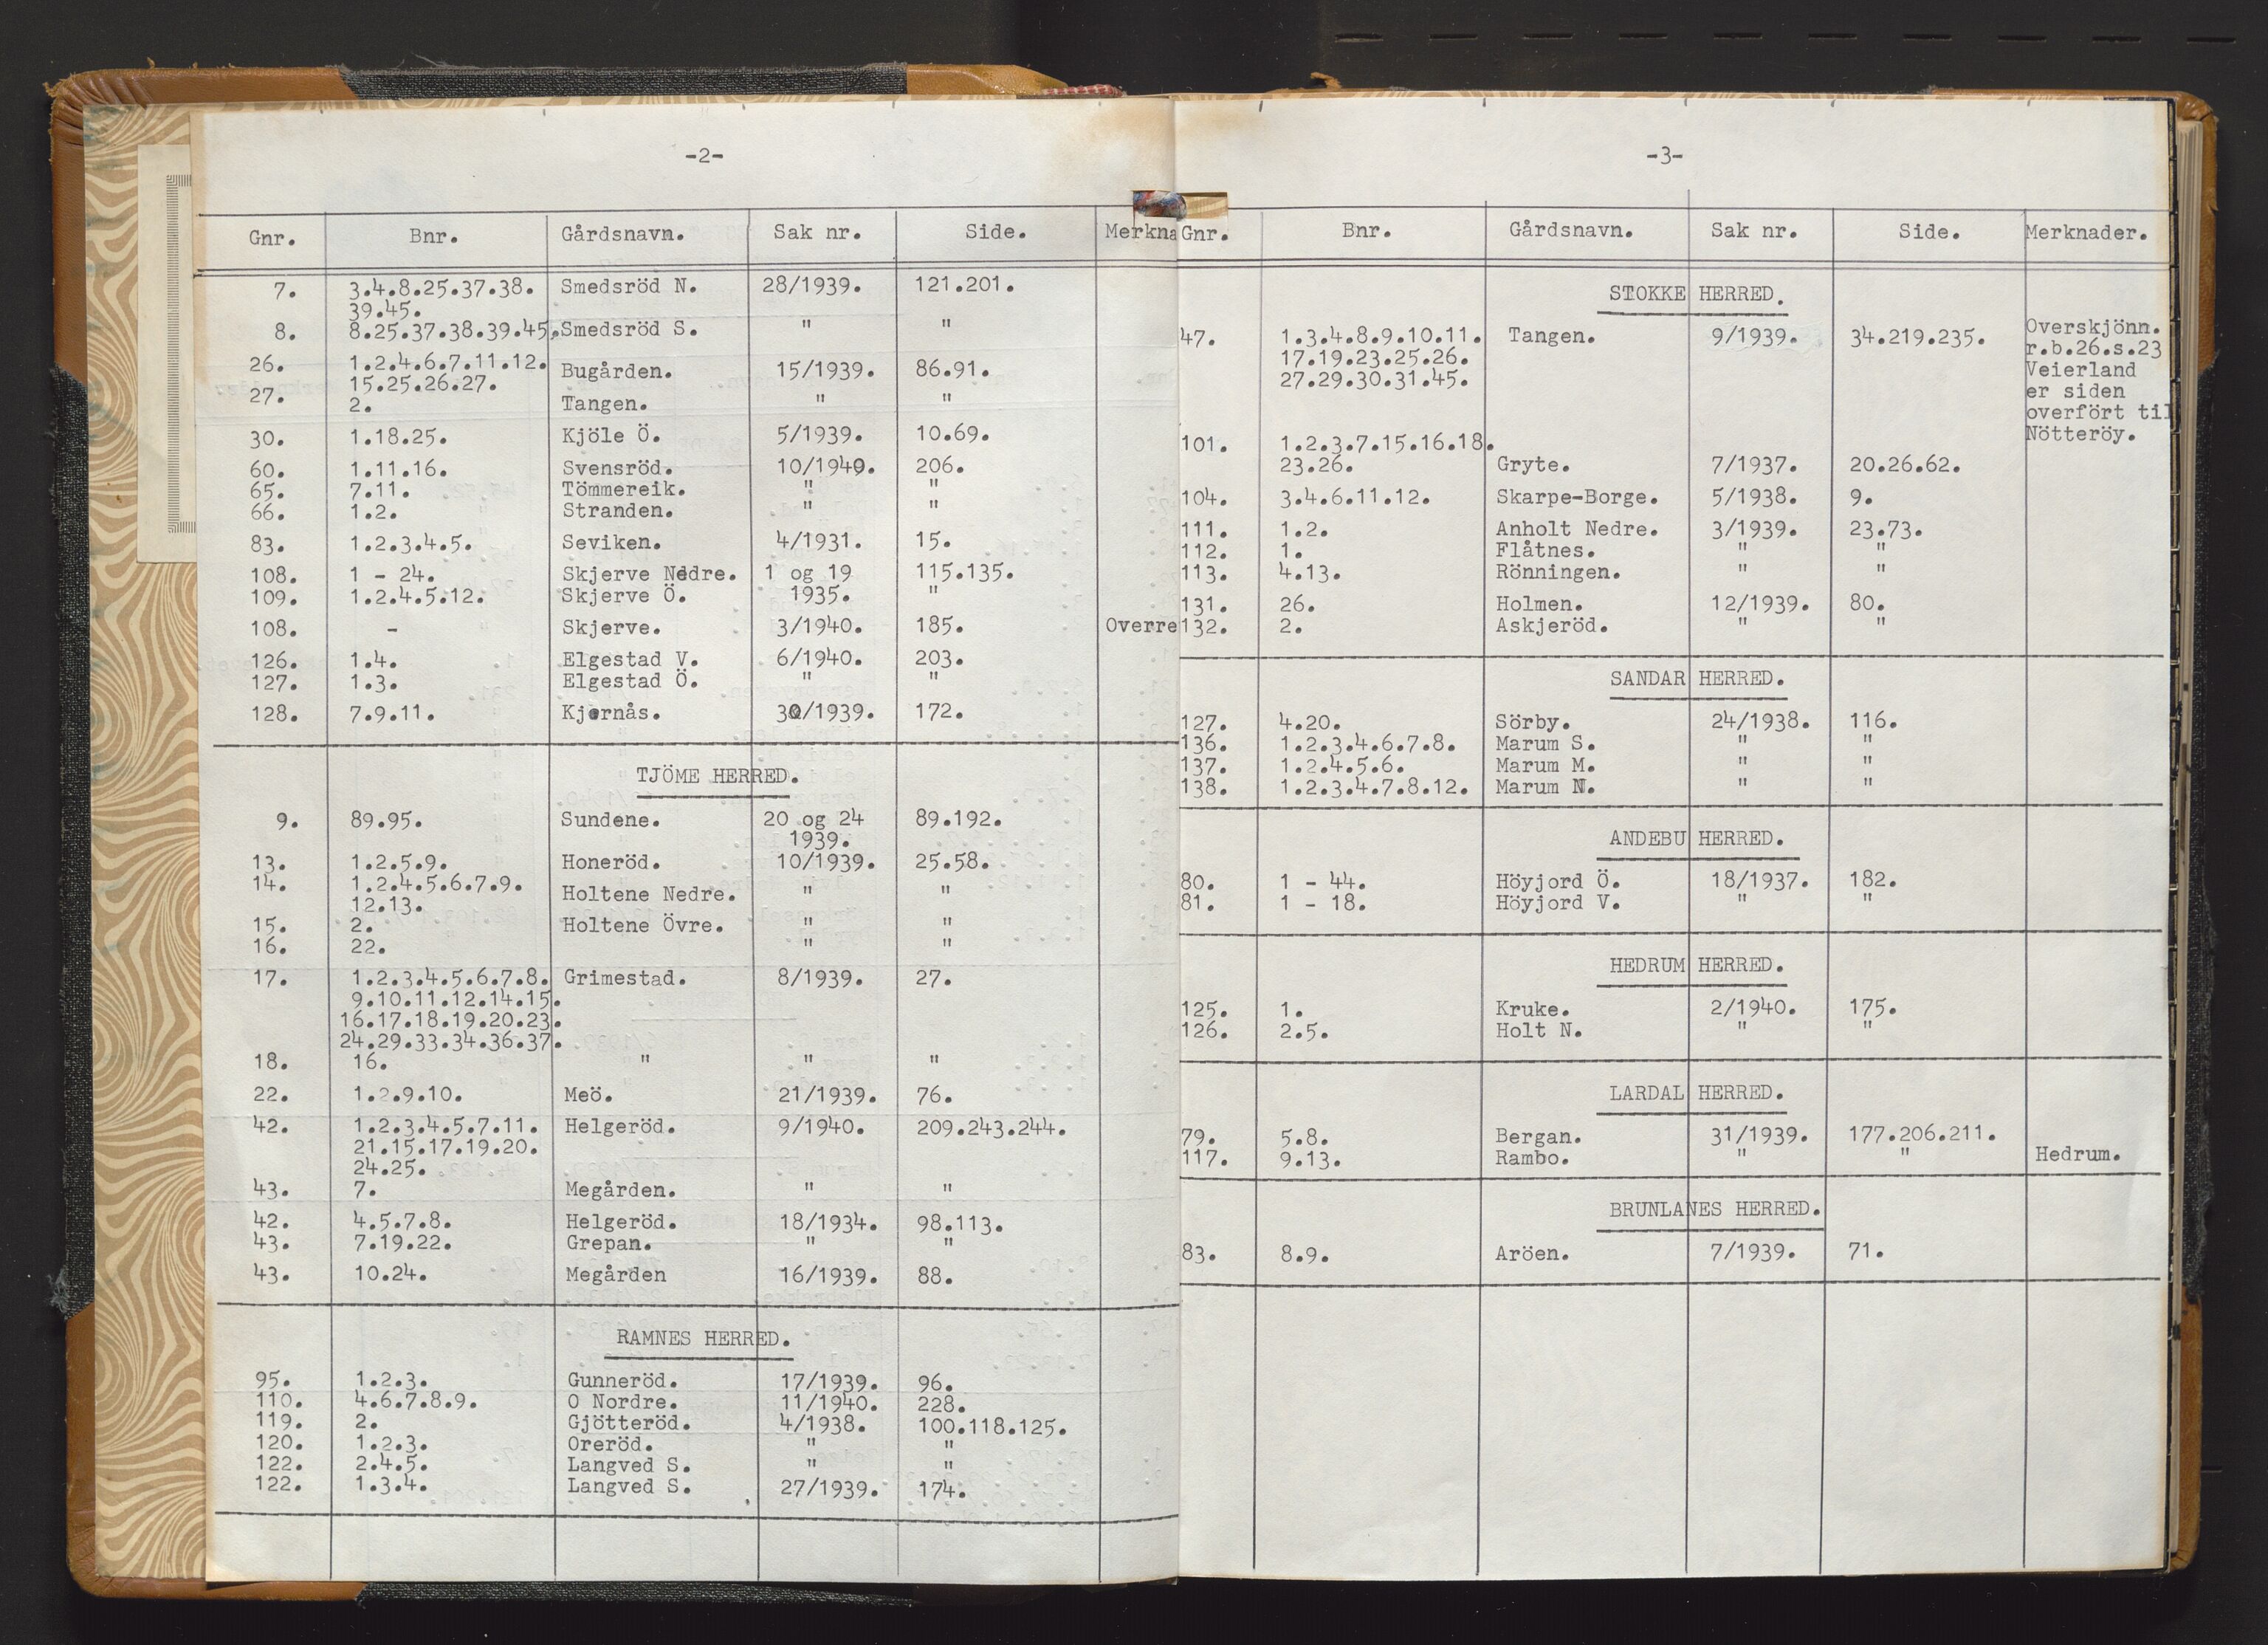 -2-
Gnr. Bnr. Gårdsnavn. Sak nr. Side. Merkna
7. 3.4.8.25.37.38. Smedsröd N. 28/1939. 121.201.
39.45.
8. 8.25.37.38.39.45. Smedsröd S. " "
26. 1.2.4.6.7.11.12. Bugården. 15/1939. 86.91.
15.25.26.27.
27. 2. Tangen. " "
30. 1.18.25. Kjöle Ö. 5/1939. 10.69.
60. 1.11.16. Svensröd. 10/1940. 206.
65. 7.11. Tömmereik. " "
66. 1.2. Stranden. " "
83. 1.2.3.4.5. Seviken. 4/1931. 15.
108. 1 - 24. Skjerve Nedre. 1 og 19 115.135.
109. 1.2.4.5.12. Skjerve Ö. 1935. "
108. - Skjerve. 3/1940. 185. Overre
126. 1.4. Elgestad V. 6/1940. 203.
127. 1.3. Elgestad Ö. " "
128. 7.9.11. Kjernås. 30/1939. 172.
TJÖME HERRED.
9. 89.95. Sundene. 20 og 24 89.192.
1939.
13. 1.2.5.9. Honeröd. 10/1939. 25.58.
14. 1.2.4.5.6.7.9. Holtene Nedre. " "
12.13.
15. 2. Holtene Övre. " "
16. 22. " "
17. 1.2.3.4.5.6.7.8. Grimestad. 8/1939. 27.
9.10.11.12.14.15.
16.17.18.19.20.23.
24.29.33.34.36.37.
18. 16. " " "
22. 1.2.9.10. Meö. 21/1939. 76.
42. 1.2.3.4.5.7.11. Helgeröd. 9/1940. 209.243.244.
21.15.17.19.20.
24.25.
43. 7. Megården. " "
42. 4.5.7.8. Helgeröd. 18/1934. 98.113.
43. 7.19.22. Grepan. " "
43. 10.24. Megården 16/1939. 88.
RAMNES HERRED.
95. 1.2.3. Gunneröd. 17/1939. 96.
110. 4.6.7.8.9. O Nordre. 11/1940. 228.
119. 2. Gjötteröd. 4/1938. 100.118.125.
120. 1.2.3. Oreröd. " "
122. 2.4.5. Langved S. " "
122. 1.3.4. Langved S. 27/1939. 174.
-3-
Gnr. Bnr. Gårdsnavn. Sak nr. Side. Merknader.
STOKKE HERRED.
47. 1.3.4.8.9.10.11. Tangen. 9/1939. 34.219.235. Overskjönn.
17.19.23.25.26. r.b.26.s.23
27.29.30.31.45. Veierland
er siden
overfört til
Nötteröy.
101. 1.2.3.7.15.16.18.
23.26. Gryte. 7/1937. 20.26.62.
104. 3.4.6.11.12. Skarpe-Borge. 5/1938. 9.
111. 1.2. Anholt Nedre. 3/1939. 23.73.
112. 1. Flåtnes. " "
113. 4.13. Rönningen. " "
131. 26. Holmen. 12/1939. 80.
132. 2. Askjeröd. " "
SANDAR HERRED.
127. 4.20. Sörby. 24/1938. 116.
136. 1.2.3.4.6.7.8. Marum S. " "
137. 1.2.4.5.6. Marum M. " "
138. 1.2.3.4.7.8.12. Marum N. " "
ANDEBU HERRED.
80. 1 - 44. Höyjord Ö. 18/1937. 182.
81. 1 - 18. Höyjord V. " "
HEDRUM HERRED.
125. 1. Kruke. 2/1940. 175.
126. 2.5. Holt N. " "
LARDAL HERRED.
79. 5.8. Bergan. 31/1939. 177.206.211.
117. 9.13. Rambo. " " Hedrum.
BRUNLANES HERRED.
83. 8.9. Aröen. 7/1939. 71.